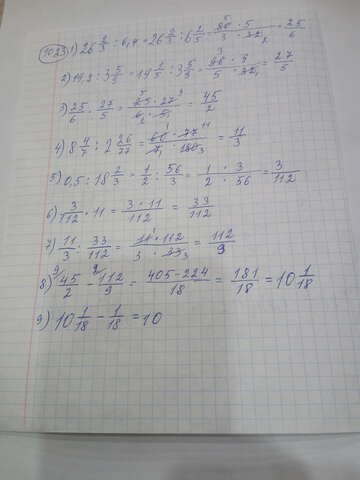 1023 1) 26 2/3 : 6,4 = 26 2/3 : 6 2/5 = 80 · 5 / 3 · 32 = 25/6
2) 19,2 : 3 5/9 = 19 1/5 : 3 5/9 = 96 · 9 / 5 · 32 = 27/5
3) 25/6 · 27/5 = 25 · 27 / 6 · 5 = 45/2
4) 8 4/7 : 2 26/77 = 60 · 77 / 7 · 180 = 11/3
5) 0,5 : 18 2/3 = 1/2 : 56/3 = 1 · 3 / 2 · 56 = 3/112
6) 3/112 · 11 = 3 · 11 / 112 = 33/112
7) 11/3 : 33/112 = 11 · 112 / 3 · 33 = 112/9
8) 45/2 - 112/9 = 405 - 224 / 18 = 181/18 = 10 1/18
9) 10 1/18 - 1/18 = 10